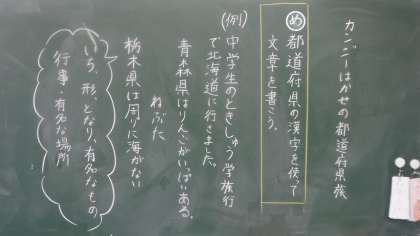 カンジーはかせの都道府県族
め 都道府県の漢字を使って
文章を書こう。
(例)中学生のときしゅう学旅行
で北海道に行きました。
青林県はりんごがいっぱいある。
ねぶた
栃木県は周りに海がない
いち、形、となり、有名なもの
行事・有名な場所